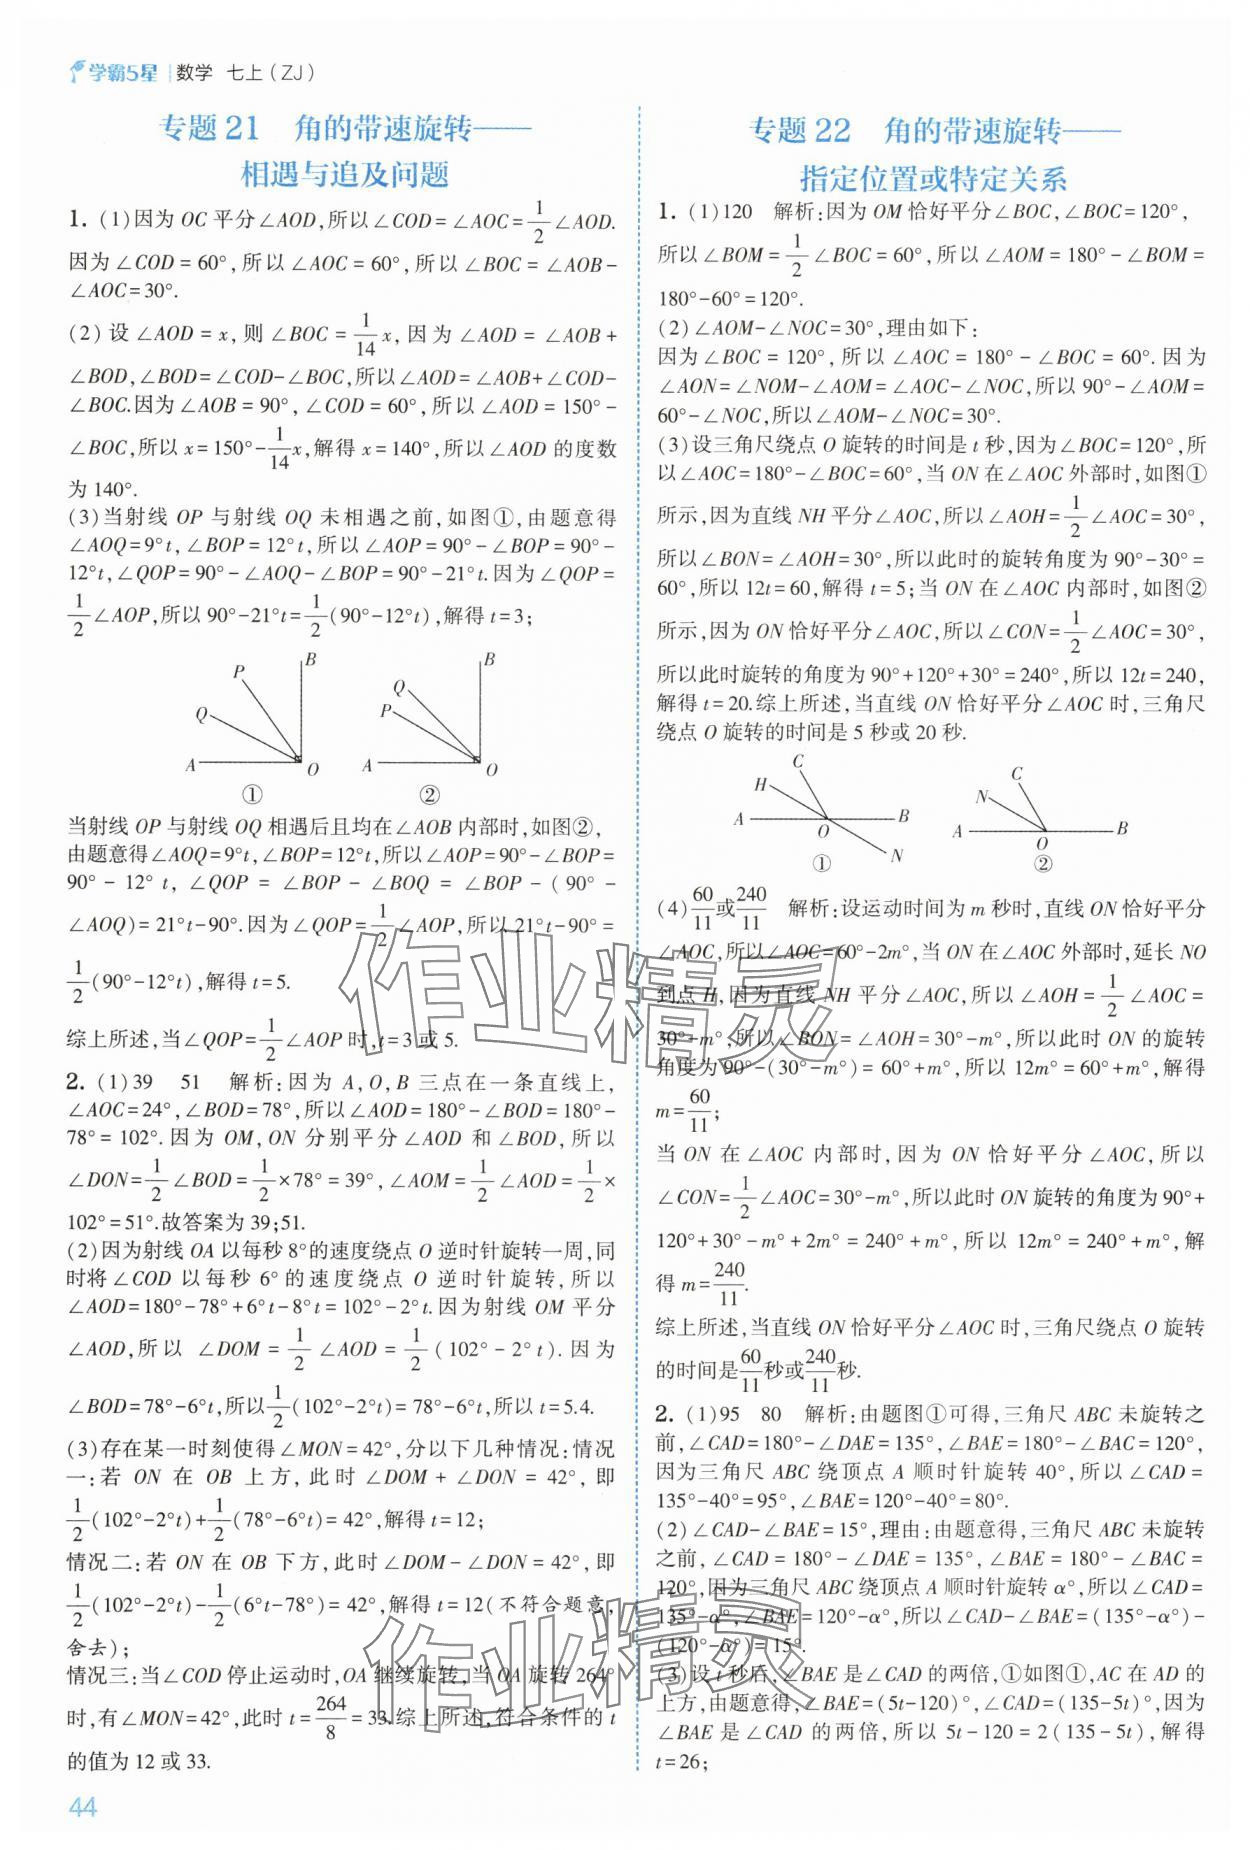 学霸5星 | 数学 七上(ZJ)
专题 21 角的带速旋转——
相遇与追及问题
1. (1)因为 OC 平分∠AOD,所以∠COD=∠AOC=1/2∠AOD.
因为∠COD=60°,所以∠AOC=60°,所以∠BOC=∠AOB-
∠AOC=30°.
(2)设∠AOD=x,则∠BOC=1/14x,因为∠AOD=∠AOB+
∠BOD,∠BOD=∠COD-∠BOC,所以∠AOD=∠AOB+∠COD-
∠BOC.因为∠AOB=90°,∠COD=60°,所以∠AOD=150°-
∠BOC,所以 x=150°-1/14x,解得 x=140°,∠AOD 的度数
为 140°.
(3)当射线 OP 与射线 OQ 未相遇之前,如图①,由题意得
∠AOQ=9°t,∠BOP=12°t,所以∠AOP=90°-∠BOP=90°-
12°t,∠QOP=90°-∠AOQ-∠BOP=90°-21°t.因为∠QOP=
1/2∠AOP,所以 90°-21°t=1/2(90°-12°t),解得 t=3;
P B Q A O ①
Q P B A O ②
当射线 OP 与射线 OQ 相遇后且均在∠AOB 内部时,如图②,
由题意得∠AOQ=9°t,∠BOP=12°t,所以∠AOP=90°-∠BOP=
90°-12°t,∠QOP=∠BOP-∠BOQ=∠BOP-(90°-
∠AOQ)=21°t-90°.因为∠QOP=1/2∠AOP,所以 21°t-90°=
1/2(90°-12°t),解得 t=5.
综上所述,当∠QOP=1/2∠AOP 时,t=3 或 5.
2. (1)39 51 解析:因为 A,O,B 三点在一条直线上,
∠AOC=24°,∠BOD=78°,所以∠AOD=180°-∠BOD=180°-
78°=102°.因为 OM,ON 分别平分∠AOD 和∠BOD,所以
∠DON=1/2∠BOD=1/2×78°=39°,∠AOM=1/2∠AOD=1/2×
102°=51°.故答案为 39;51.
(2)因为射线 OA 以每秒 8°的速度绕点 O 逆时针旋转一周,同
时将∠COD 以每秒 6°的速度绕点 O 逆时针旋转,所以
∠AOD=180°-78°+6°t-8°t=102°-2°t.因为射线 OM 平分
∠AOD,所以 ∠DOM=1/2∠AOD=1/2(102°-2°t).因为
∠BOD=78°-6°t,所以1/2(102°-2°t)=78°-6°t,所以 t=5.4.
(3)存在某一时刻使得∠MON=42°,分以下几种情况:情况
一:若 ON 在 OB 上方,此时∠DOM+∠DON=42°,即
1/2(102°-2°t)+1/2(78°-6°t)=42°,解得 t=12;
情况二:若 ON 在 OB 下方,此时∠DOM-∠DON=42°,即
1/2(102°-2°t)-1/2(6°t-78°)=42°,解得 t=12(不符合题意,
舍去);
情况三:当∠COD 停止运动时,OA 继续旋转,当 OA 旋转 264°
时,有∠MON=42°,此时 t=264/8=33.综上所述,符合条件的 t
的值为 12 或 33.
44
专题 22 角的带速旋转——
指定位置或特定关系
1. (1)120 解析:因为 OM 恰好平分∠BOC,∠BOC=120°,
所以∠BOM=1/2∠BOC=60°,所以∠AOM=180°-∠BOM=
180°-60°=120°.
(2)∠AOM-∠NOC=30°,理由如下:
因为∠BOC=120°,所以∠AOC=180°-∠BOC=60°.因为
∠AON=∠NOM-∠AOM=∠AOC-∠NOC,所以 90°-∠AOM=
60°-∠NOC,所以∠AOM-∠NOC=30°.
(3)设三角尺绕点 O 旋转的时间是 t 秒,因为∠BOC=120°,所
以∠AOC=180°-∠BOC=60°,当 ON 在∠AOC 外部时,如图①
所示,因为直线 NH 平分∠AOC,所以∠AOH=1/2∠AOC=30°,
所以∠BON=∠AOH=30°,所以此时的旋转角度为 90°-30°=
60°,所以 12t=60,解得 t=5;当 ON 在∠AOC 内部时,如图②
所示,因为 ON 恰好平分∠AOC,所以∠CON=1/2∠AOC=30°,
所以此时旋转的角度为 90°+120°+30°=240°,所以 12t=240,
解得 t=20.综上所述,当直线 ON 恰好平分∠AOC 时,三角尺
绕点 O 旋转的时间是 5 秒或 20 秒.
C H A O B N ①
C N A O B ②
(4)60/11或240/11 解析:设运动时间为 m 秒时,直线 ON 恰好平分
∠AOC,所以∠AOC=60°-2m°,当 ON 在∠AOC 外部时,延长 NO
到点 H,因为直线 NH 平分∠AOC,所以∠AOH=1/2∠AOC=
30°-m°,所以∠BON=∠AOH=30°-m°,所以此时 ON 的旋转
角度为 90°-(30°-m°)=60°+m°,所以 12m°=60°+m°,解得
m=60/11;
当 ON 在∠AOC 内部时,因为 ON 恰好平分∠AOC,所以
∠CON=1/2∠AOC=30°-m°,所以此时 ON 旋转的角度为 90°+
120°+30°-m°+2m°=240°+m°,所以 12m°=240°+m°,解
得 m=240/11.
综上所述,当直线 ON 恰好平分∠AOC 时,三角尺绕点 O 旋转
的时间是60/11秒或240/11秒.
2. (1)95 80 解析:由题图①可得,三角尺 ABC 未旋转之
前,∠CAD=180°-∠DAE=135°,∠BAE=180°-∠BAC=120°,
因为三角尺 ABC 绕顶点 A 顺时针旋转 40°,所以∠CAD=
135°-40°=95°,∠BAE=120°-40°=80°.
(2)∠CAD-∠BAE=15°,理由:由题意得,三角尺 ABC 未旋转
之前,∠CAD=180°-∠DAE=135°,∠BAE=180°-∠BAC=
120°,因为三角尺 ABC 绕顶点 A 顺时针旋转 α°,所以∠CAD=
135°-α°,∠BAE=120°-α°,所以∠CAD-∠BAE=(135°-α°)-
(120°-α°)=15°.
(3)设 t 秒后,∠BAE 是∠CAD 的两倍,①如图①,AC 在 AD 的
上方,由题意得,∠BAE=(5t-120)°,∠CAD=(135-5t)°,因为
∠BAE 是∠CAD 的两倍,所以 5t-120=2(135-5t),解得
t=26;
作业精灵
作业精灵